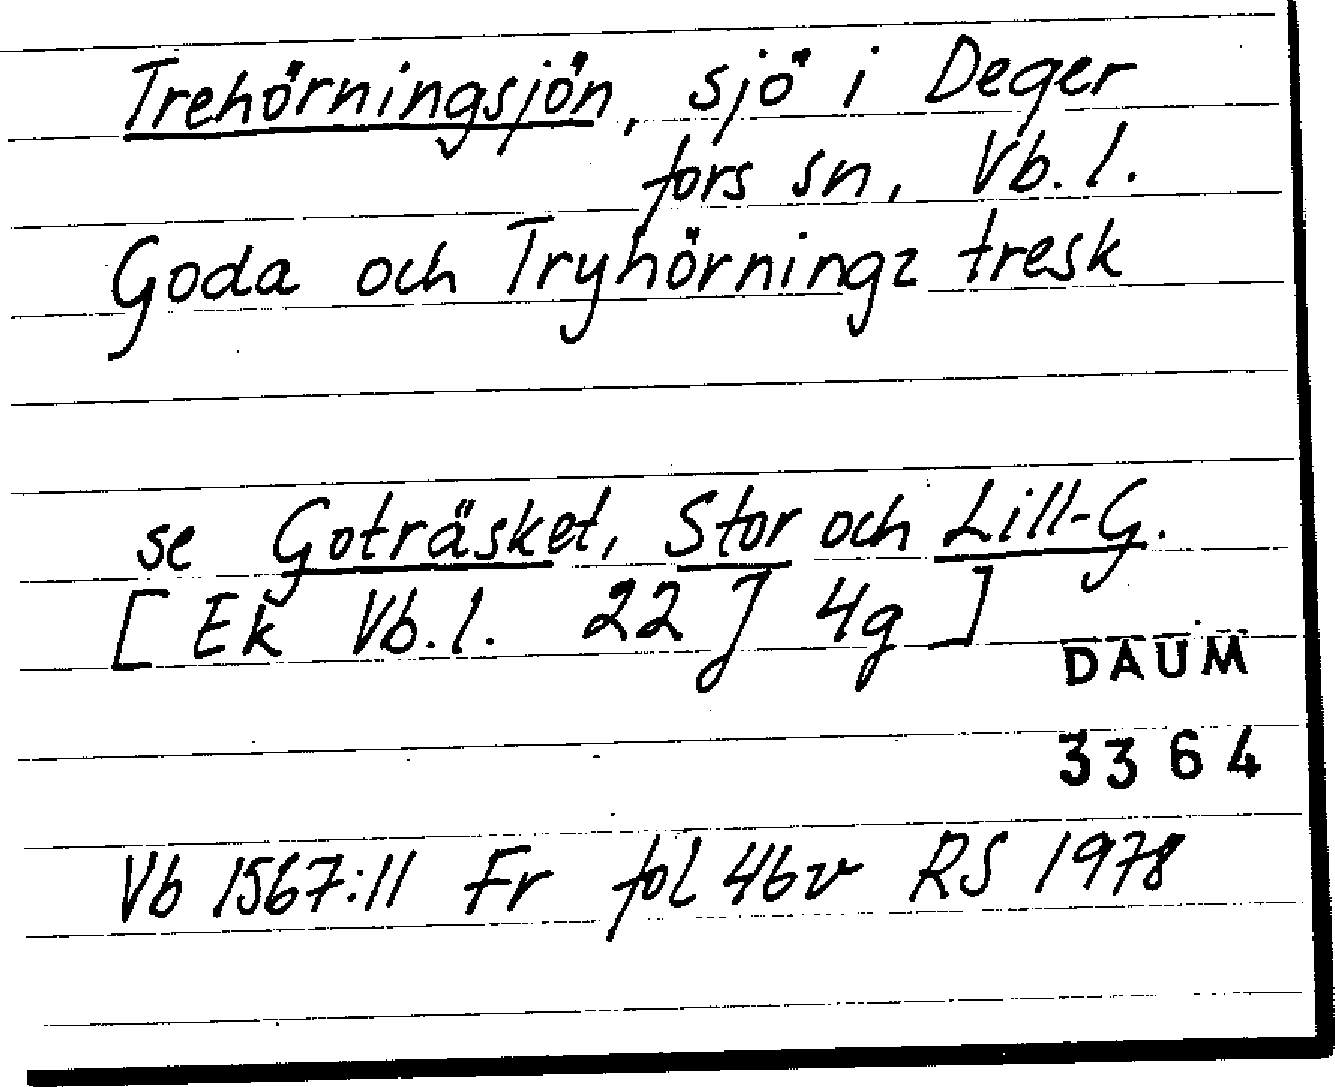 Trehörningsjön, sjö i Deger
fors sn, Vb. l.
Goda och Tryhörningz tresk
se Goträsket, Stor och Lill-G.
[ Ek Vb. l. 22 J 4g ]
DAUM
3364
Vb 1567:11 Fr fol 46v RS 1978